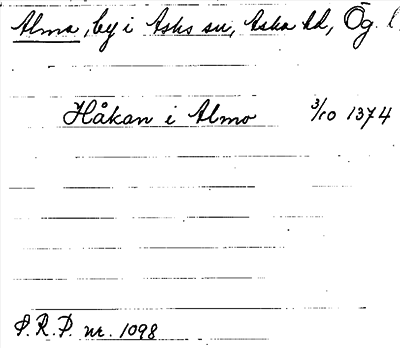 Alma, by i Asks sn, Aska hd, Ög. l
Håkan i Almo 3/10 1374
S.R.P. nr. 1098